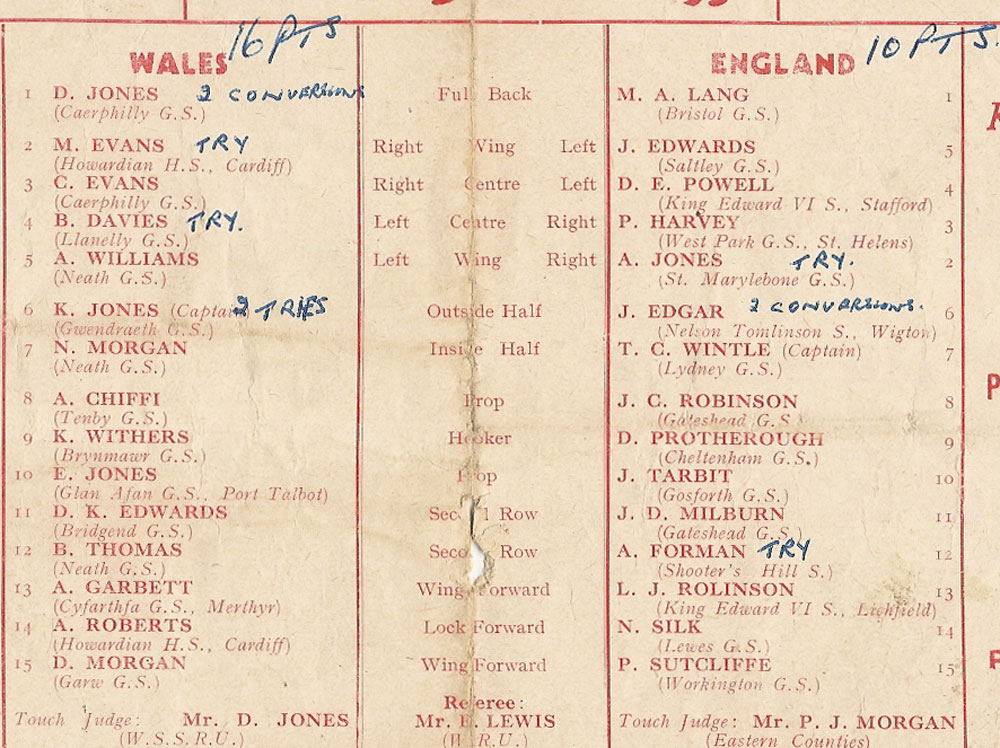 16 PTS
10 PTS.
WALES
ENGLAND
1 D. JONES 2 CONVERSIONS Full Back M. A. LANG 1
(Caerphilly G.S.) (Bristol G.S.)
2 M. EVANS TRY Right Wing Left J. EDWARDS 5
(Howardian H.S., Cardiff) (Saltley G.S.)
3 C. EVANS Right Centre Left D. E. POWELL 4
(Caerphilly G.S.) (King Edward VI S., Stafford)
4 B. DAVIES TRY. Left Centre Right P. HARVEY 3
(Llanelly G.S.) (West Park G.S., St. Helens)
5 A. WILLIAMS Left Wing Right A. JONES TRY. 2
(Neath G.S.) (St. Marylebone G.S.)
6 K. JONES (Captain 2 TRIES Outside Half J. EDGAR 2 CONVERSIONS. 6
(Gwendraeth G.S.) (Nelson Tomlinson S., Wigton)
7 N. MORGAN Inside Half T. C. WINTLE (Captain) 7
(Neath G.S.) (Lydney G.S.)
8 A. CHIFFI Prop J. C. ROBINSON 8
(Tenby G.S.) (Gateshead G.S.)
9 K. WITHERS Hooker D. PROTHEROUGH 9
(Brynmawr G.S.) (Cheltenham G.S.)
10 E. JONES Prop J. TARBIT 10
(Glan Afan G.S., Port Talbot) (Gosforth G.S.)
11 D. K. EDWARDS Second Row J. D. MILBURN 11
(Bridgend G.S.) (Gateshead G.S.)
12 B. THOMAS Second Row A. FORMAN TRY 12
(Neath G.S.) (Shooter's Hill S.)
13 A. GARBETT Wing Forward L. J. ROLINSON 13
(Cyfarthfa G.S., Merthyr) (King Edward VI S., Lichfield)
14 A. ROBERTS Lock Forward N. SILK 14
(Howardian H.S., Cardiff) (Lewes G.S.)
15 D. MORGAN Wing Forward P. SUTCLIFFE 15
(Garw G.S.) (Workington G.S.)
Referee:
Touch Judge: Mr. D. JONES Mr. E. LEWIS Touch Judge: Mr. P. J. MORGAN
(W.S.S.R.U.) (W.R.U.) (Eastern Counties)